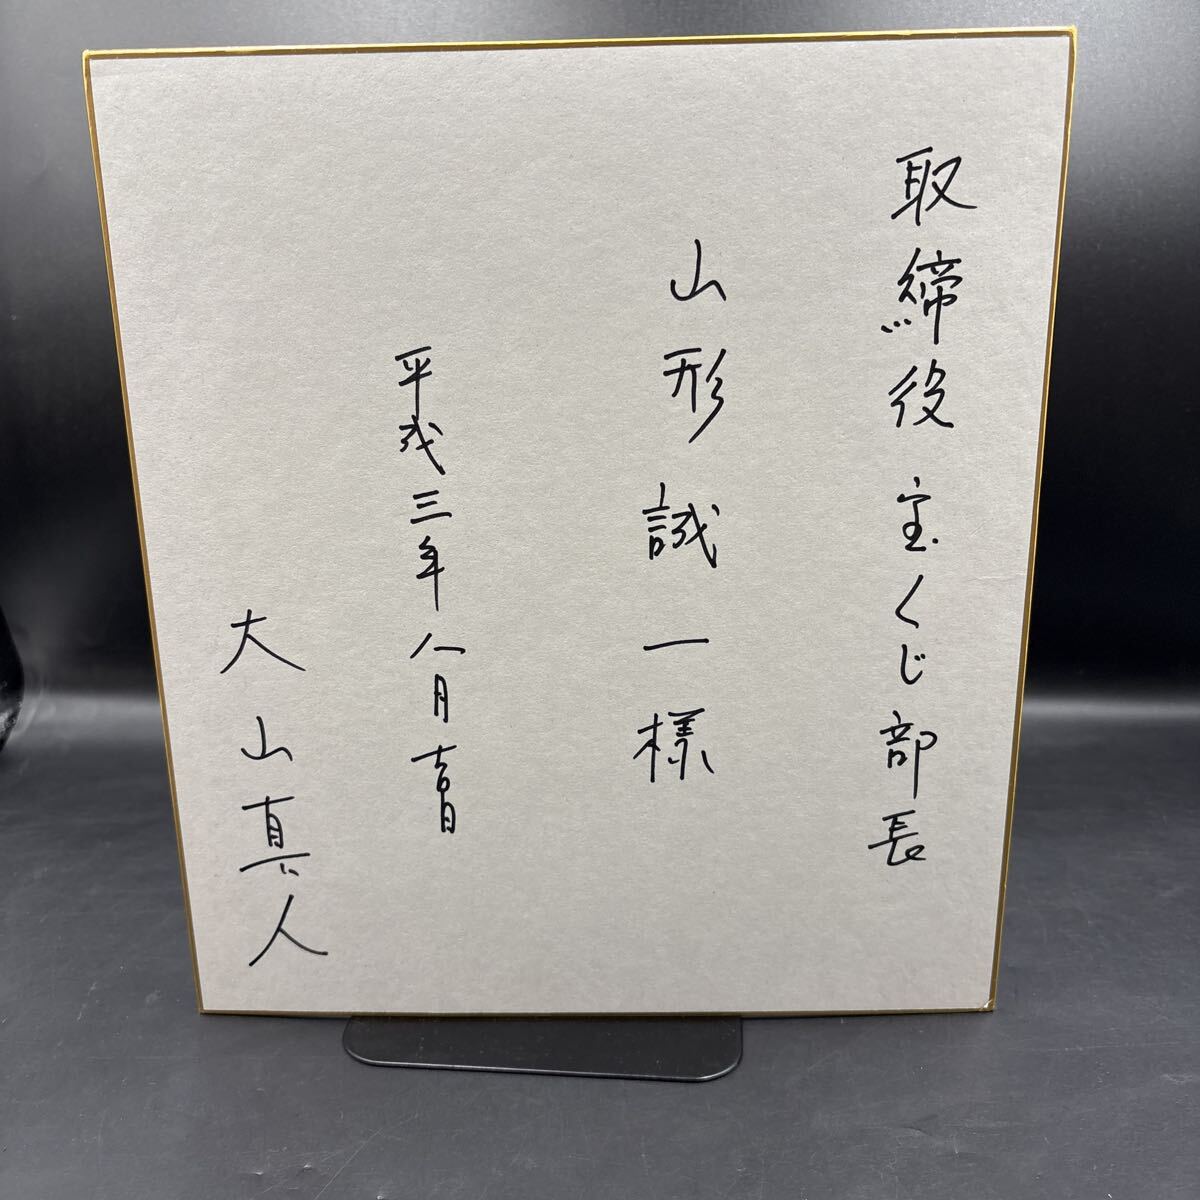 取締役宝くじ部長
山形誠一様
平成三年八月吉日
大山真人